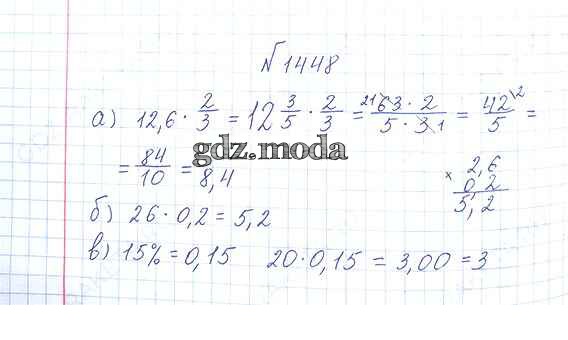 №1448
а) 12,6 · 2/3 = 12 3/5 · 2/3 = 21 63 · 2 / 5 · 3 1 = 42 \2 / 5 =
= 84/10 = 8,4
gdz.moda
× 2,6
0,2
5,2
б) 26 · 0,2 = 5,2
в) 15% = 0,15 20 · 0,15 = 3,00 = 3